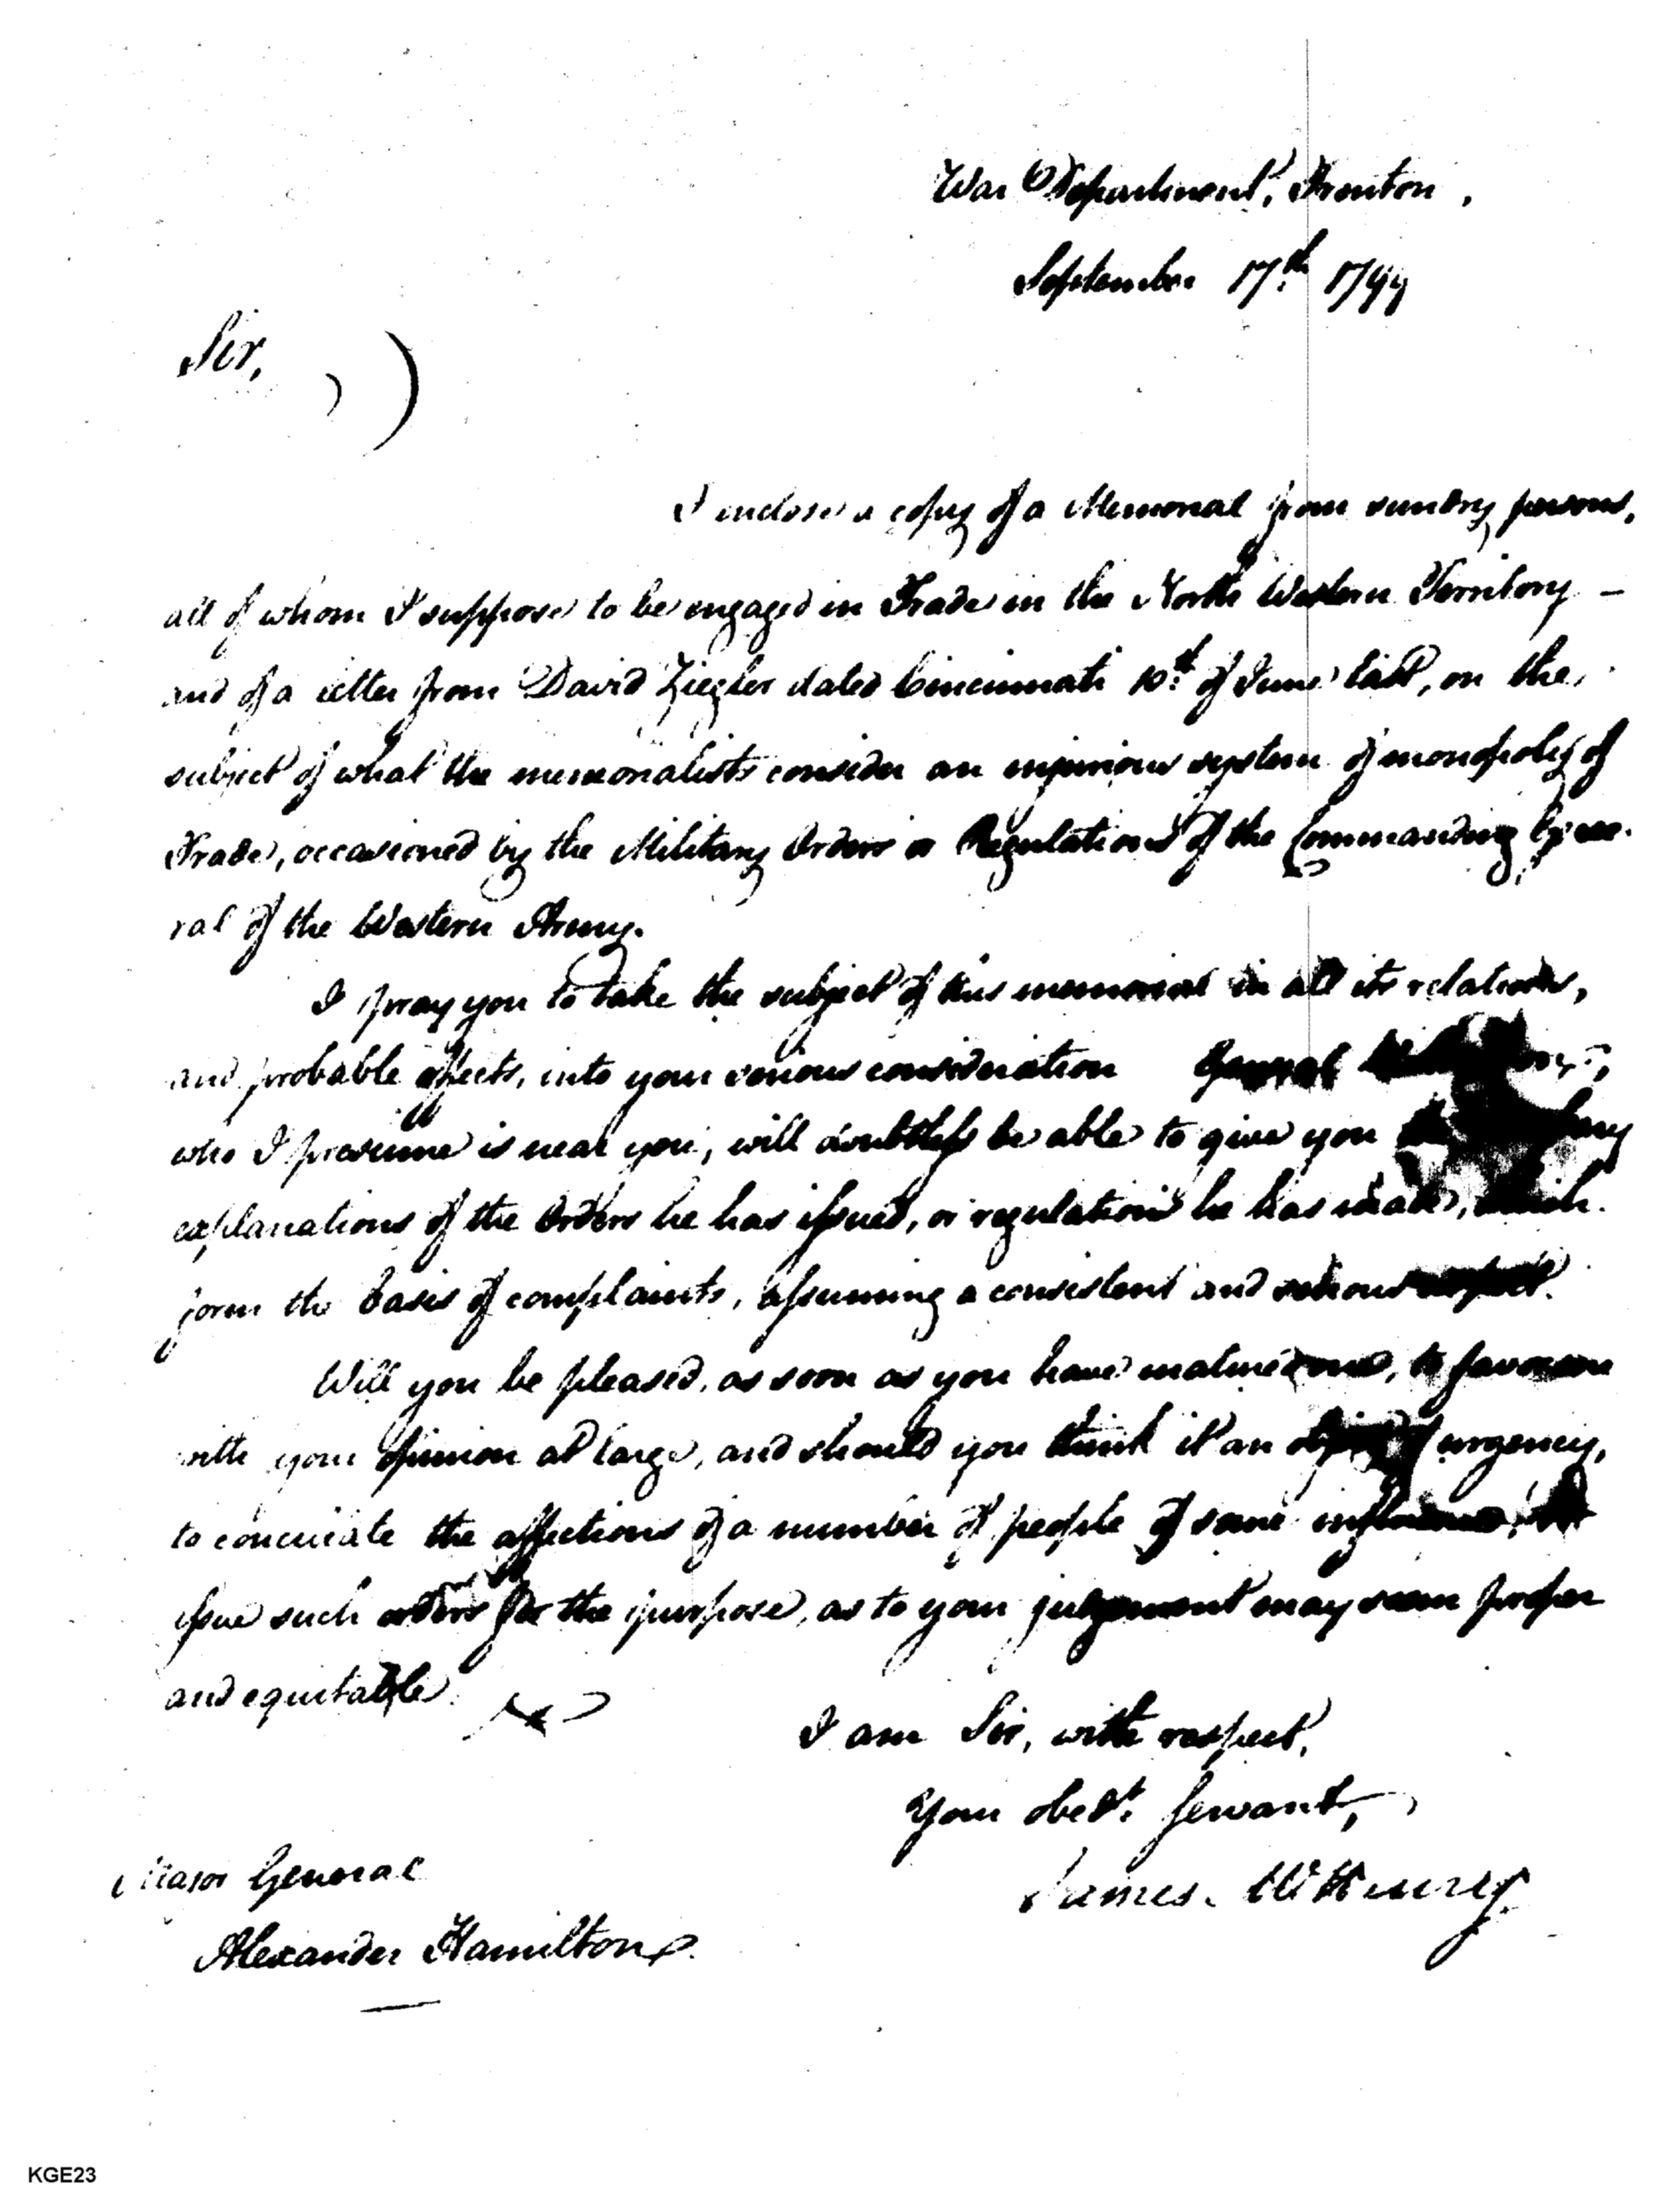 War Department, Trenton,
September 17th. 1799
Sir,
I enclose a copy of a Memorial from sundry persons,
all of whom I suppose to be engaged in Trade in the North Western Territory –
and of a letter from David Ziegler dated Cincinnati 10th. of June last, on the
subject of what the memorialists consider an injurious system of monopoly of
Trade, occasioned by the Military Orders or Regulations of the Commanding Gene-
ral of the Western Army.
I pray you to take the subject of this memorial in all its relations,
and probable effects, into your serious consideration General
who I presume is near you, will doubtless be able to give you
explanations of the Orders he has issued, or regulations he has made, which
form the basis of complaints, assuming a consistent and serious aspect.
Will you be pleased, as soon as you have matured one, to favour me
with your opinion at large, and should you think it an object of urgency,
to conciliate the affections of a number of people of some influence,
issue such orders for the purpose, as to your judgement may seem proper
and equitable.
I am Sir, with respect,
Your obedt. Servant,
James McHenry
Major General
Alexander Hamilton
KGE23